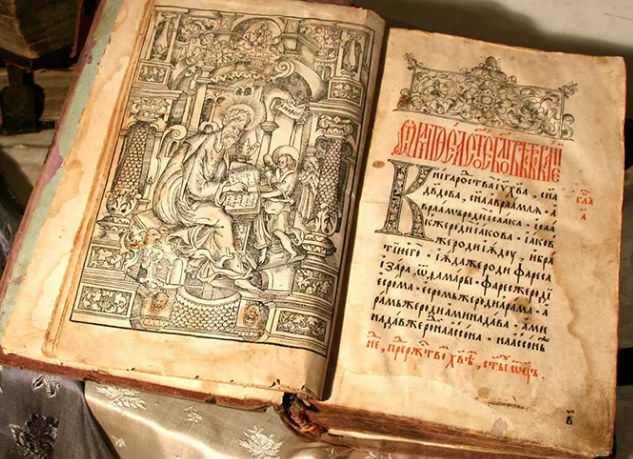 Книга родства і҃у х҃ва, сн҃а
дв҃дова, сн҃а авраамля. а
враамъ роди исаака. ісаа
къ же роди іакова. іаков
же роди іюду, и бра
тїю его. іюда же роди фареса
і зара, ѿ ѳамары. фаресъ же роди
есрома. есромъ же роди арама. а
рамъ же роди аминадава. ами
надавъ же роди наасона. наасонъ
не, пре ржтво хв҃ѣ, ст҃ы ѿц҃ъ.
гла
а